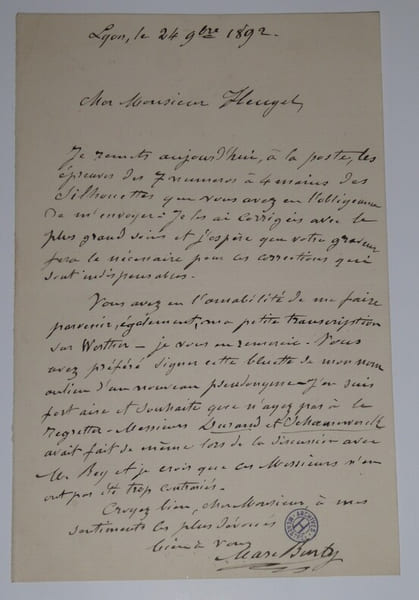 Lyon, le 24 9bre 1892.
Cher Monsieur Heugel,
Je remets aujourd'hui, à la poste, les
épreuves des 7 numeros à 4 mains des
Silhouettes que vous avez eu l'obligeance
de m'envoyer. Je les ai corrigées avec le
plus grand soin et j'espère que votre graveur
fera le nécessaire pour ces corrections qui
sont indispensables.
Vous avez eu l'amabilité de me faire
parvenir, également, ma petite transcription
sur Werther — je vous en remercie. Vous
avez préféré signer cette bluette de mon nom
au lieu d'un nouveau pseudonyme — j'en suis
fort aise et souhaite que n'ayez pas à le
regretter. Messieurs Durand et Schoenewerk
avait fait de même lors de la discussion avec
M. Rey et je crois que ces Messieurs n'en
ont pas été trop contrariés.
Croyez bien, cher Monsieur à mes
sentiments les plus dévoués
bien à vous
Marc Burty
ARCHIVES